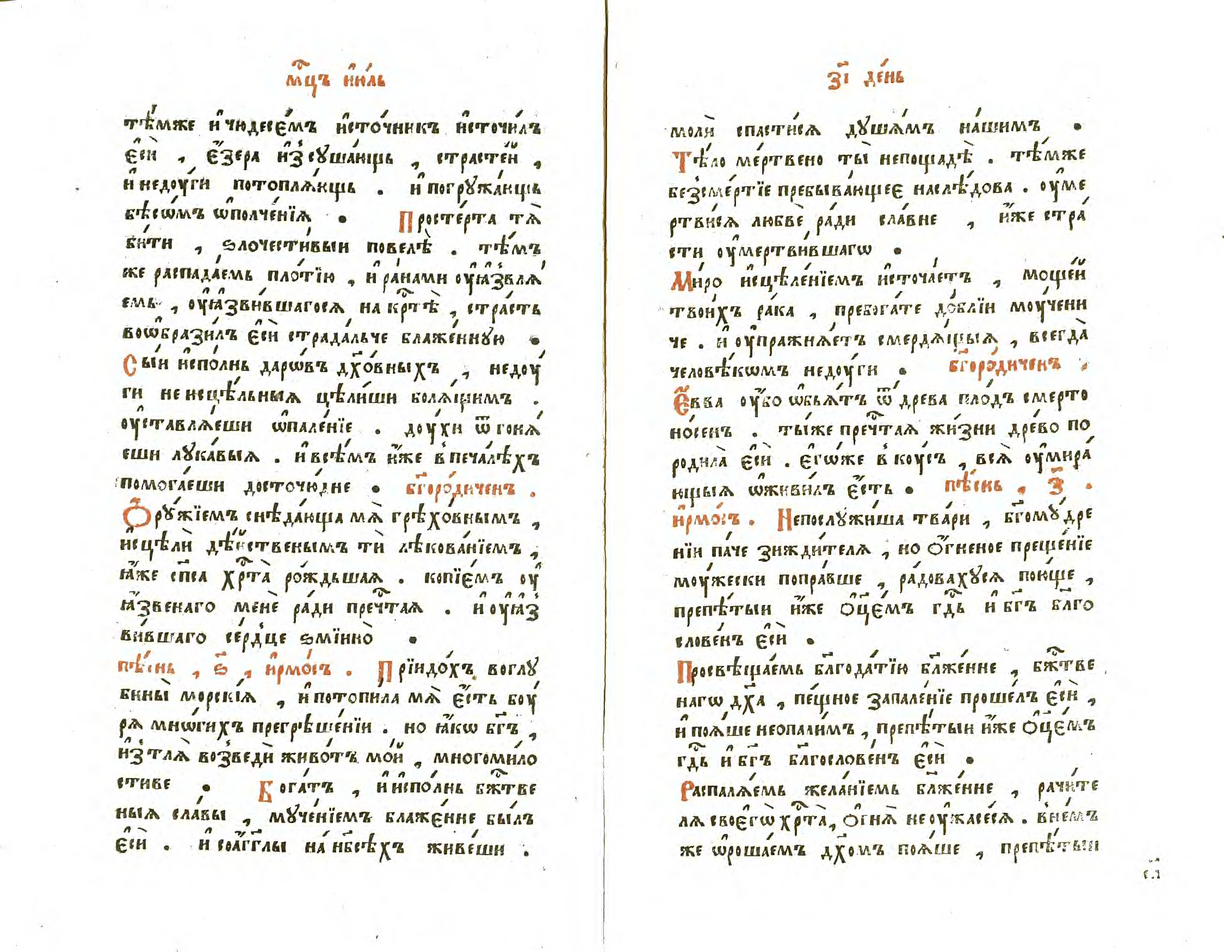 мⷭ҇цъ і҆ю́ль
тѣ́мже и҆ чюдесє́мъ и҆сто́чникъ и҆сточи́лъ
є҆сѝ , є҆́зера и҆зсꙋша́ющь , страсте́й ,
и҆ недꙋ́ги потопля́ющь . и҆ погрꙋжа́ющь
бѣсѡ́мъ ѡ҆полче́нїѧ • Просте́рта тѧ̀
би́ти , ѕлочести́выи повелѣ̀ . тѣ́мъ
же распада́емь пло́тїю , и҆ ра́нами ᲂу҆ꙗ҆звлѧ́
емь , ᲂу҆ꙗ҆зви́вшагосѧ на крⷭ҇тѣ̀ , стра́сть
воѡбрази́лъ є҆сѝ страда́льче блаже́ннꙋю •
Сы́и и҆спо́лнь дарѡ́въ дх҃о́вныхъ , недꙋ́
ги неисцѣ́льныѧ цѣли́ши болѧ́щимъ .
ᲂу҆ставлѧ́еши ѡ҆пале́нїе . дꙋ́хи ѿгонѧ́
еши лꙋка́выѧ . и҆ всѣ́мъ и҆́же в печа́лѣхъ
помога́еши досточю́дне • бг҃оро́диченъ .
Ѻ҆рꙋ́жїемъ снѣда́юща мѧ̀ грѣхо́внымъ ,
и҆сцѣлѝ дѣ́йственымъ ти̏ лѣкова́нїемъ ,
ꙗ҆́же сп҃са хрⷭ҇та̀ ро́ждьшаѧ . копїє́мъ ᲂу҆
ꙗ҆́звенаго менѐ ра́ди пречⷭ҇таѧ . и҆ ᲂу҆ꙗ҆з
ви́вшаго се́рдце ѕмїи́но •
пѣ́снь , ѕ҃ , і҆рмо́съ . Прїидо́хъ во глꙋ
бины̀ морскі́ѧ , и҆ потопи́ла мѧ̀ є҆́сть бꙋ́
рѧ мно́гихъ прегрѣше́нїи . но ꙗ҆́кѡ бг҃ъ ,
и҆з тлѧ̀ возведѝ живо́тъ мо́й , многоми́ло
стиве • Бога́тъ , и҆ и҆спо́лнь бжⷭ҇тве
ныѧ сла́вы , мꙋче́нїемъ блаже́нне бы́лъ
є҆сѝ . и҆ со а҆́гг҃лы на нб҃сѣ́хъ живе́ши .
з҃і де́нь
молѝ спасти́сѧ дꙋша́мъ на́шимъ •
Тѣ́ло ме́ртвено ты̀ непощадѣ̀ . тѣ́мже
безсме́ртїе пребыва́ющеє наслѣ́дова . ᲂу҆ме
ртви́сѧ любвѐ ра́ди сла́вне , и҆́же стра́
сти ᲂу҆мертви́вшагѡ •
Мѵ́ро и҆сцѣле́нїемъ и҆сточа́етъ , моще́й
твои́хъ ра́ка , пребога́те до́блїи мꙋ́чени
че . и҆ ᲂу҆пражнѧ́етъ смердѧ́щыѧ , всегда̀
человѣ́кѡмъ недꙋ́ги • бг҃оро́диченъ .
Є҆́вва ᲂу҆́бо ѡ҆б̾ѧ́тъ ѿ дре́ва пло́дъ смерто
но́сенъ . ты́же пречⷭ҇таѧ жи́зни дре́во по
роди́ла є҆сѝ . є҆гѡ́же в кꙋ́съ , всѧ̀ ᲂу҆мира́
ющыѧ ѡ҆живи́лъ є҆́сть • пѣ́снь , з҃ .
і҆рмо́съ . Непослꙋжи́ша тва́ри , бг҃омꙋ́дре
нїи па́че зижди́телѧ , но ѻ҆́гненое преще́нїе
мꙋ́жески попра́вше , ра́довахꙋсѧ пою́ще ,
препѣ́тыи и҆́же ѻ҆ц҃є́мъ гдⷭ҇ь и҆ бг҃ъ бл҃го
слове́нъ є҆сѝ •
Просвѣща́емь благода́тїю бл҃же́нне , бжⷭ҇тве
нагѡ дх҃а , пе́щное запале́нїе проше́лъ є҆сѝ ,
и҆ поѧ́ше неопали́мъ , препѣ́тыи и҆́же ѻ҆ц҃є́мъ
гдⷭ҇ь и҆ бг҃ъ бл҃гослове́нъ є҆сѝ •
Распалѧ́емь жела́нїемь бл҃же́нне , рачи́те
лѧ своегѡ̀ хрⷭ҇та̀ , ѻ҆гнѧ̀ не ᲂу҆жасе́сѧ . в не́мъ
же ѡ҆роша́емъ дх҃омъ поѧ́ше , препѣ́тыи